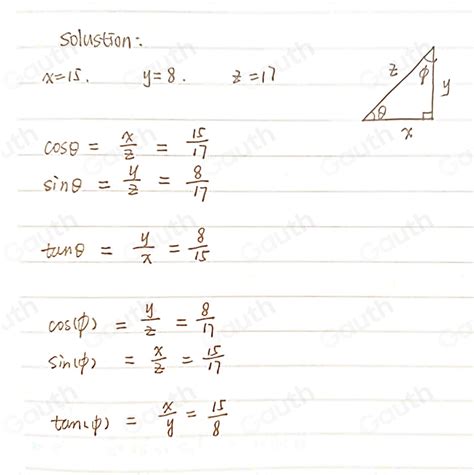 solustion:
x=15. y=8. z=17
z φ y
θ
x
cosθ = x/z = 15/17
sinθ = y/z = 8/17
tanθ = y/x = 8/15
cos(φ) = y/z = 8/17
sin(φ) = x/z = 15/17
tan(φ) = x/y = 15/8
Gauth